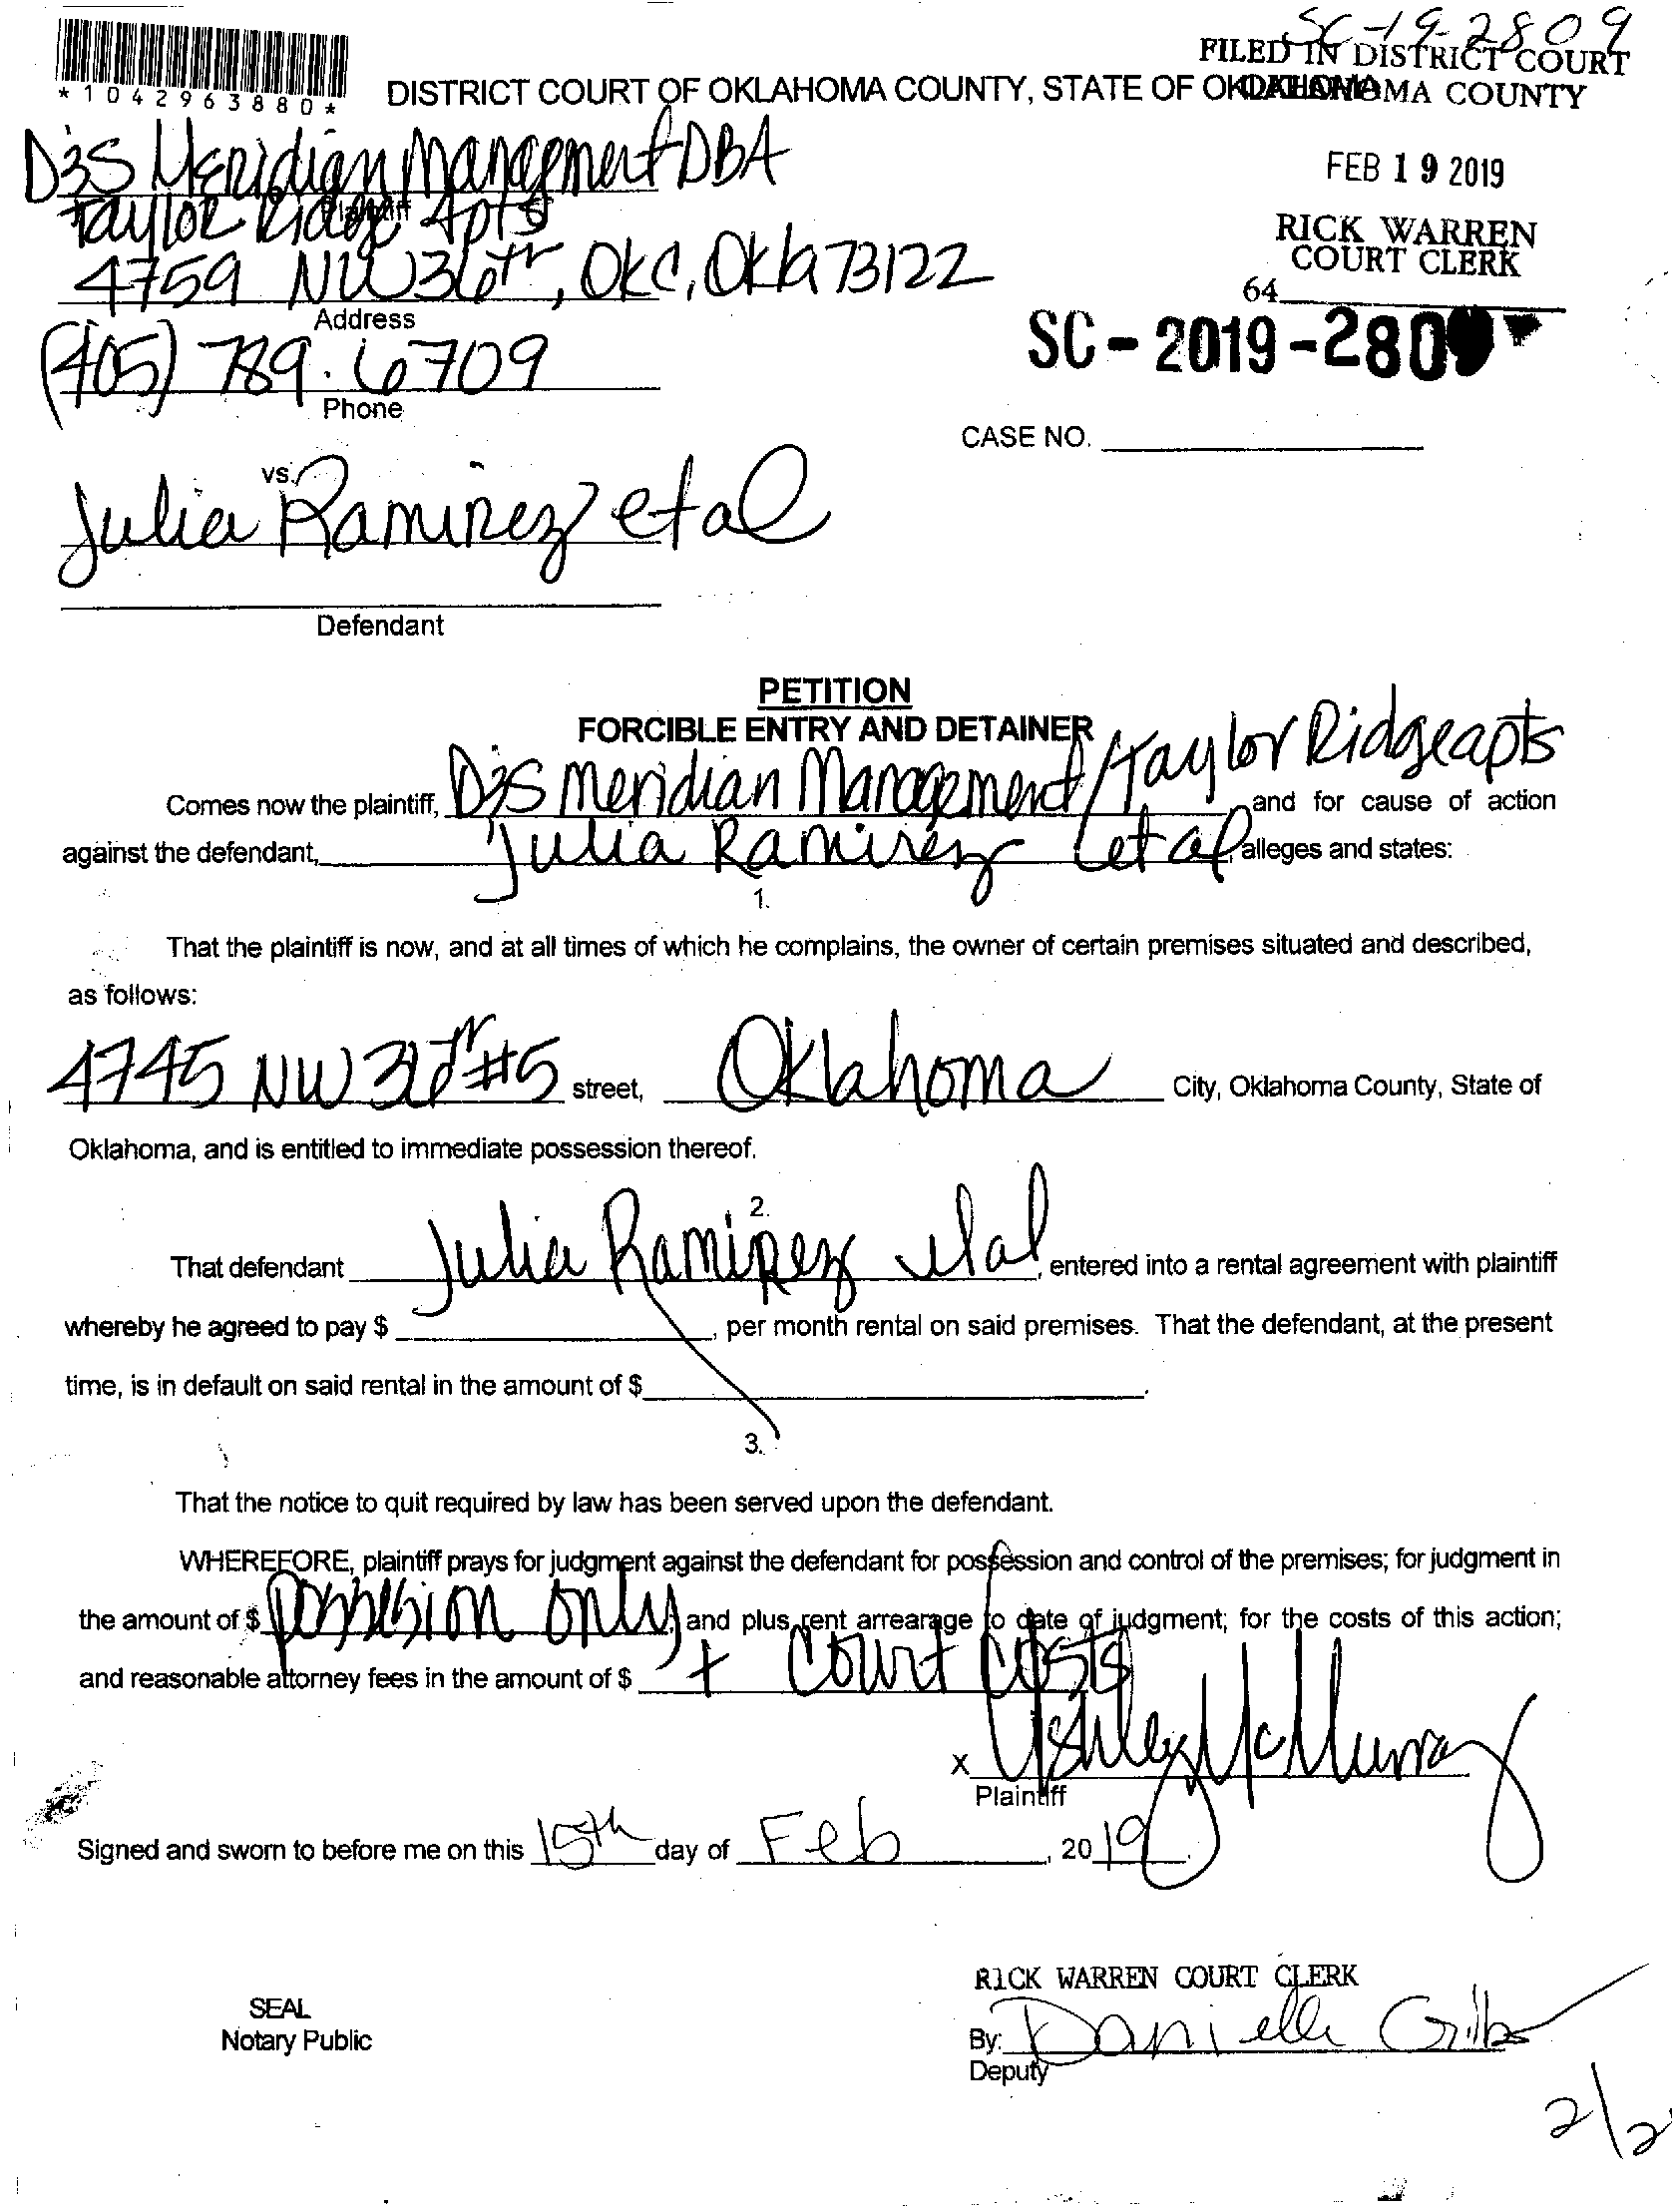 SC-19-2809
FILED IN DISTRICT COURT
*1042963880*
DISTRICT COURT OF OKLAHOMA COUNTY, STATE OF OKLAHOMA
OKLAHOMA COUNTY
D3S Meridian Managment DBA
FEB 19 2019
Taylor Ridge Apts
Plaintiff
RICK WARREN
COURT CLERK
4759 NW 36th, OKC, Okla 73122
64
Address
SC-2019-2809
(405) 789.6709
Phone
CASE NO.
vs.
Julia Ramirez et al
Defendant
PETITION
FORCIBLE ENTRY AND DETAINER
Comes now the plaintiff, D3S Meridian Management/Taylor Ridge apts and for cause of action
against the defendant, Julia Ramirez et al, alleges and states:
1.
That the plaintiff is now, and at all times of which he complains, the owner of certain premises situated and described,
as follows:
4745 NW 36th #5 street, Oklahoma City, Oklahoma County, State of
Oklahoma, and is entitled to immediate possession thereof.
2.
That defendant Julia Ramirez et al, entered into a rental agreement with plaintiff
whereby he agreed to pay $ , per month rental on said premises. That the defendant, at the present
time, is in default on said rental in the amount of $ .
3.
That the notice to quit required by law has been served upon the defendant.
WHEREFORE, plaintiff prays for judgment against the defendant for possession and control of the premises; for judgment in
the amount of $ possesion only, and plus rent arrearage to date of judgment; for the costs of this action;
and reasonable attorney fees in the amount of $ + Court Costs
x Ashley McMurray
Plaintiff
Signed and sworn to before me on this 15th day of Feb, 2019.
RICK WARREN COURT CLERK
SEAL
Notary Public
By: Danielle
Deputy